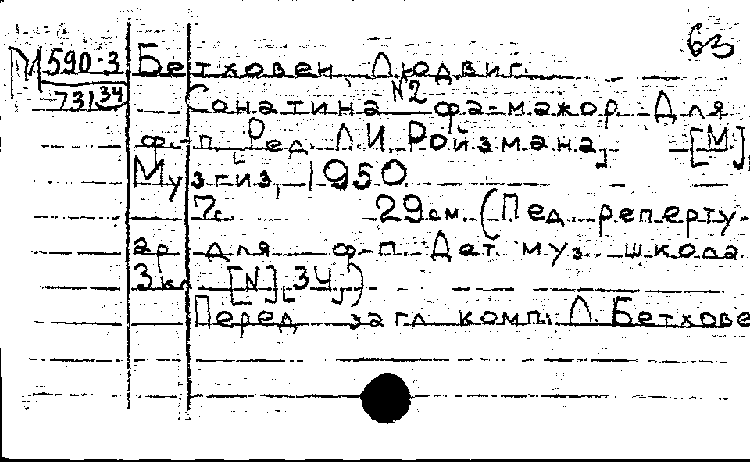 63
М 590-3 Бетховен, Людвиг.
731 34 Сонатина №2 фа-мажор. Для
ф.-п. [Ред. Л.И. Ройзмана] [М.],
Музгиз, 1950.
7с. 29см. (Пед. реперту-
ар для ф-п. Дет. муз. школа.
3 кл. [N] [34])
Перед загл. комп.: Л. Бетхове